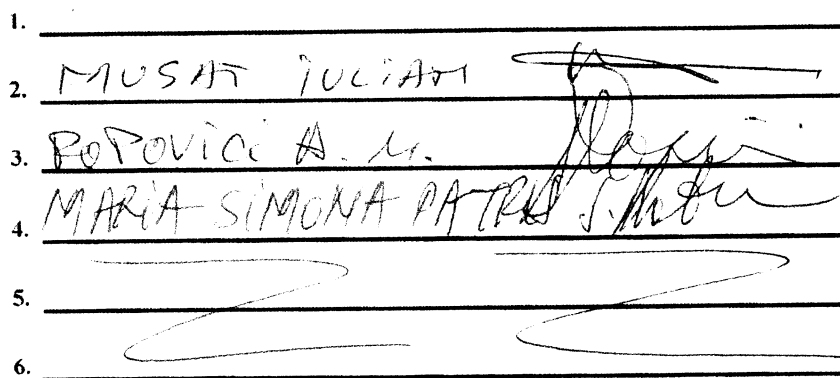 1.
MUSAT IULIAN
2.
POPOVICI A. M.
3.
MARIA SIMONA PATRU
4.
5.
6.